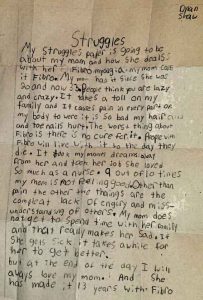 Dylan
Shaw
Struggles
My struggles paper is going to be
about my mom and how she deals
with her Fibromyagia. my mom calls
it Fibro. My mom has it since she was
and now 33. People think you are lazy
and crazy. It takes a toll on my
family and It causes pain in every part of
my body to were it is so bad my hair
and toe nails hurt. the worst thing about
Fibro is there is no cure for it. People with
Fibro will live with it to the day they
die. It tok my moms dreams away
from her and took her job she loved
so much as a nurse. 9 out of 10 times
my mom is not feeling good. Other than
pain the other the things are the
compleat lack of engery and miss-
understanding of others. My mom does
not get to spend time with her family
and that really makes her sad. If
she gets sick it takes awhile for
her to get better.
but at the end of the day I will
always love my mom. And She
has made it 13 years with Fibro